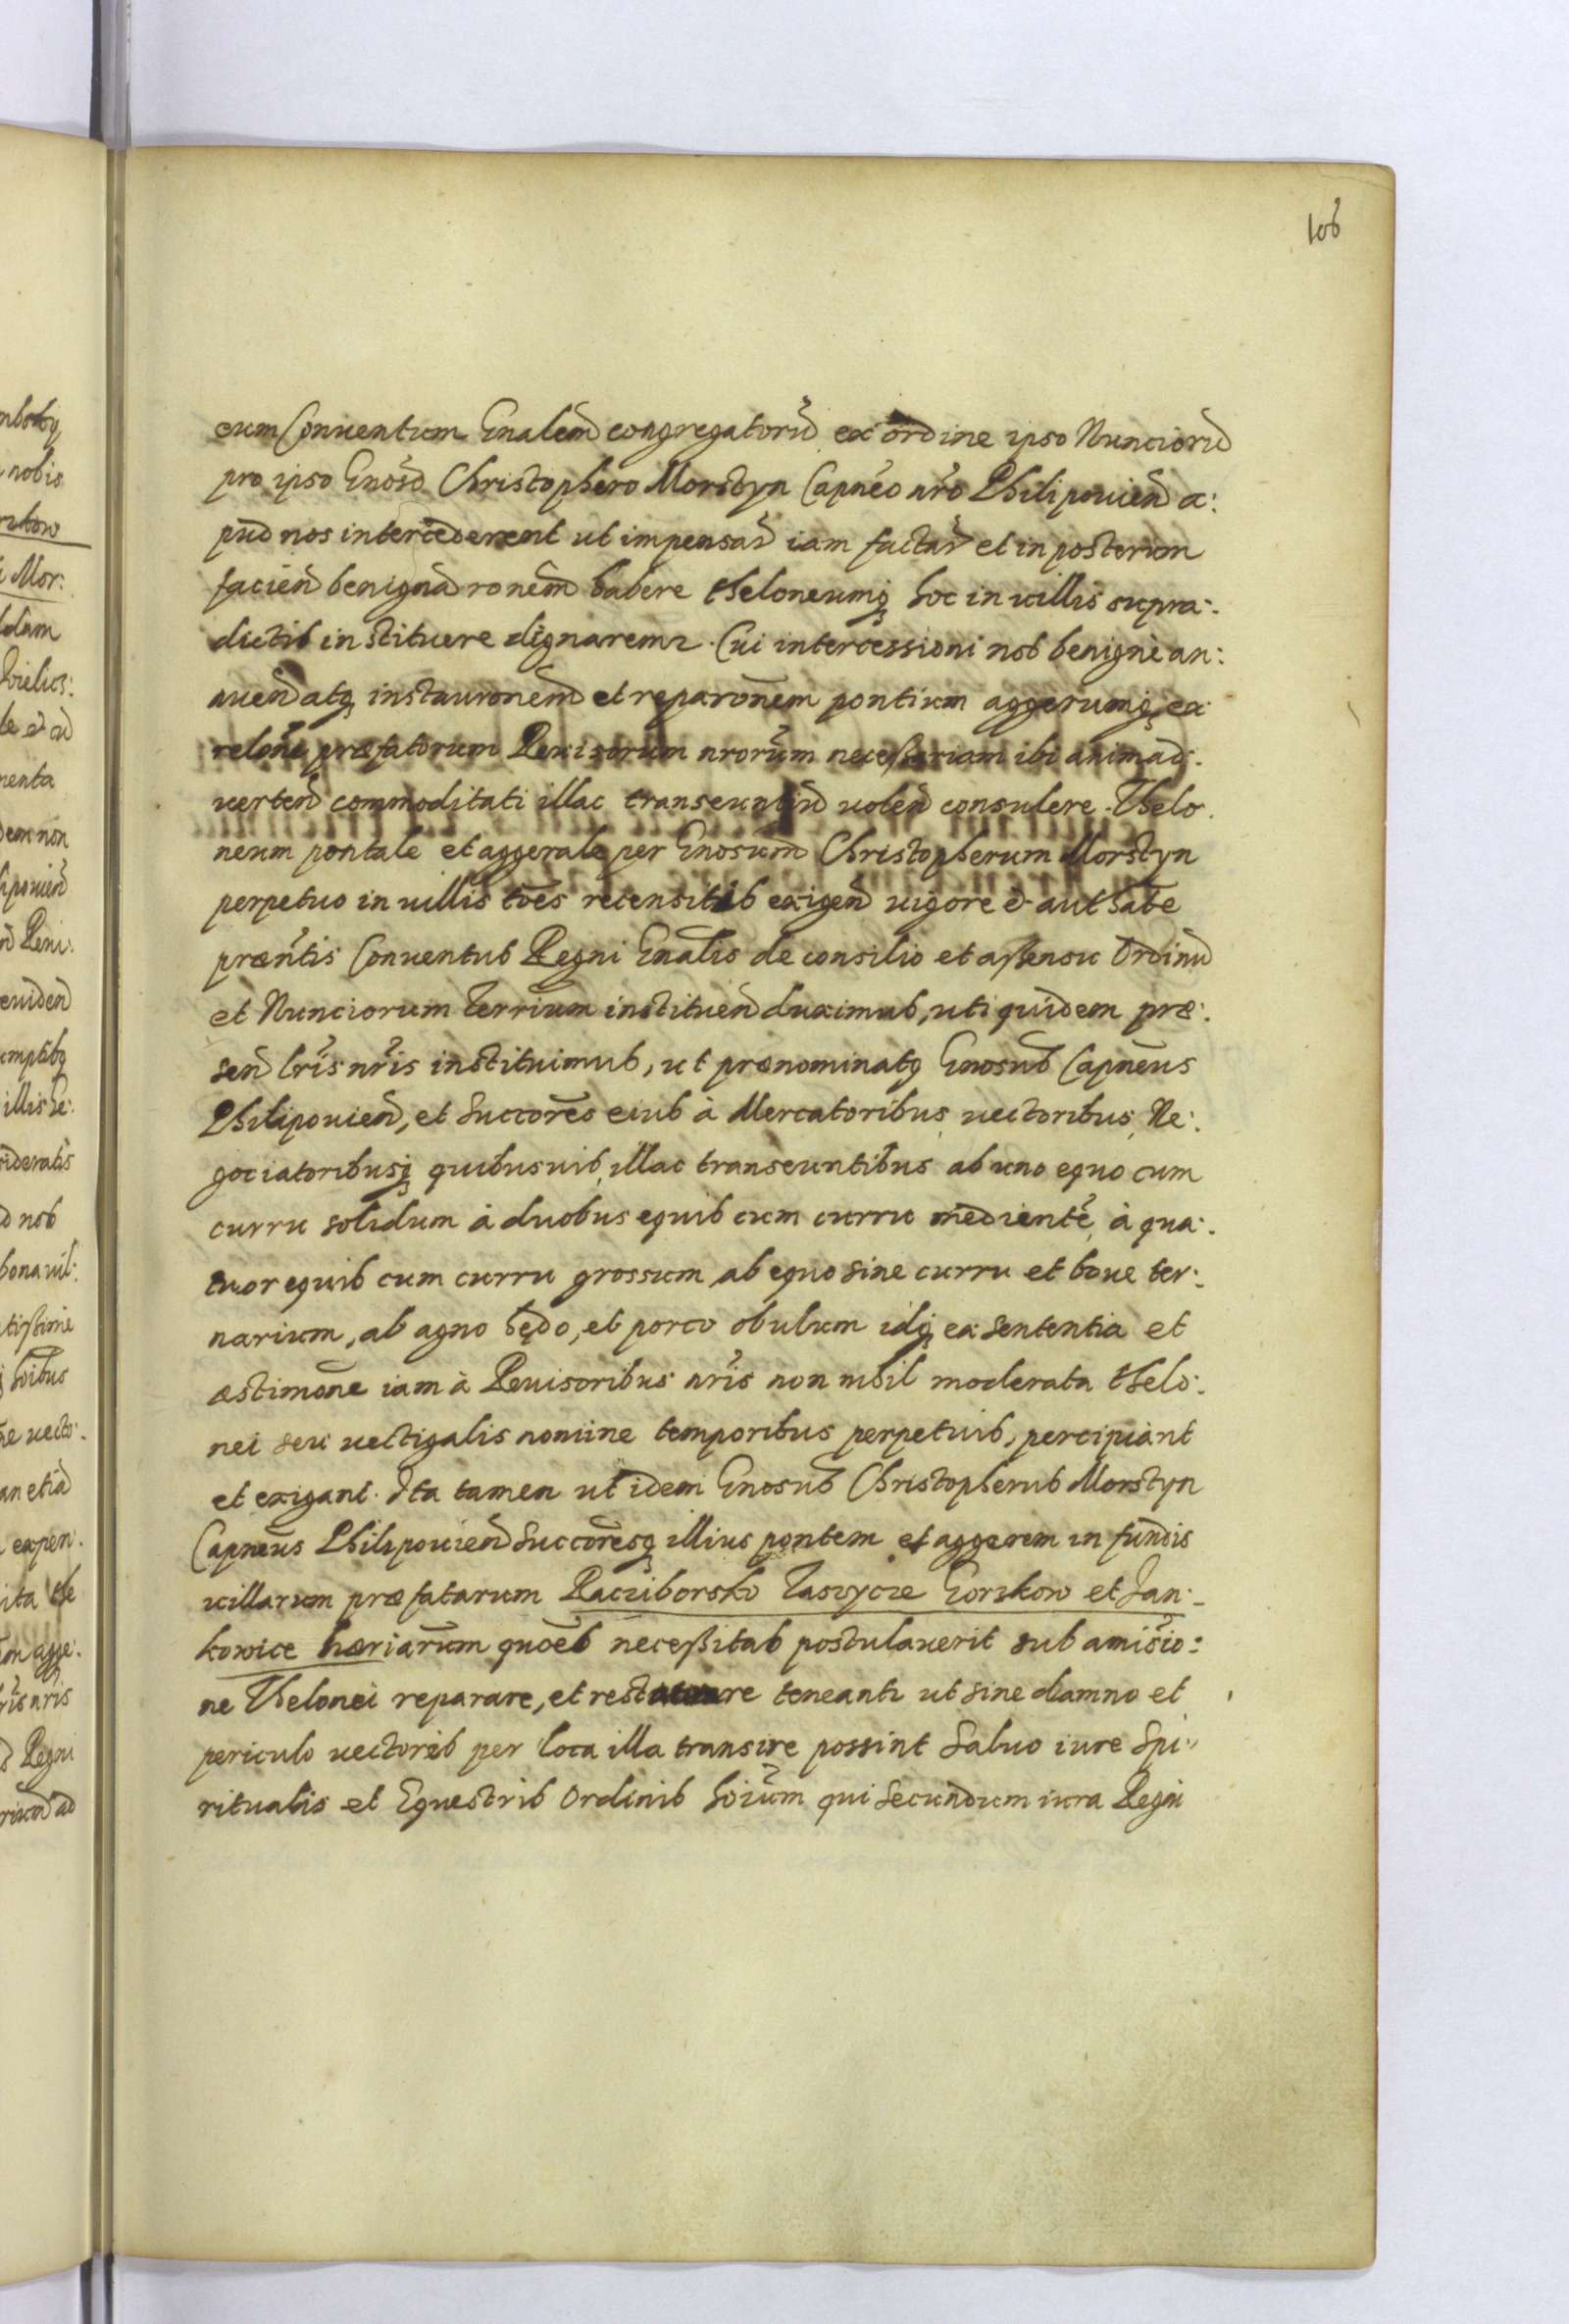 106
eum Conuentum Gnalem congregatorum ex ordine ipso Nunciorum
pro ipso Gnoso Christophero Morstyn Capneo nro Philipouien a:
pud nos intercederent ut impensarum iam factarum et in posterum
facien benignam ronem habere theloneumq hoc in uillis supra:
dictis instituere dignaremur. Cui intercessioni nos benigne an:
nuen atq instauronem et reparonem pontium aggerumq, ex
relone præfatorum Reuisorum nrorum necessariam ibi animad:
uerten commoditati illac transeuntium uolen consulere. Thelo
neum pontale et aggerale per Gnosum Christopherum Morstyn
perpetuo in uillis toes recensitis exigen uigore & authate
præntis Conuentus Regni Gnalis de consilio et assensu Ordinum
et Nunciorum Terrium instituen duximus, uti quidem præ:
sen lris nris instituimus, ut prænominatq Gnosus Capneus
Philipouien, et Succores eius à Mercatoribus, uectoribus, Ne:
gociatoribusq quibusuis, illac transeuntibus ab uno equo cum
curru solidum à duobus equis cum curru mediente, à qua:
tuor equis cum curru grossum ab equo sine curru et boue ter:
narium, ab agno hędo, et porco obulum idq ex sententia et
æstimone iam à Reuisoribus nris non nihil moderata thelo:
nei seu uectigalis nomine temporibus perpetuis, percipiant
et exigant. Ita tamen ut idem Gnosus Christopherus Morstyn
Capneus Philipouien Succoresq illius pontem et aggerem in fundis
uillarum præfatarum Racziborsko Taszycze Gorzkow et Jan:
kowice hæriarum quoes necessitas postulauerit sub amissio:
ne Thelonei reparare, et restaurare teneantur ut sine damno et
periculo uectores per loca illa transire possint Saluo iure Spi:
ritualis et Equestris Ordinis hoium qui secundum iura Regni